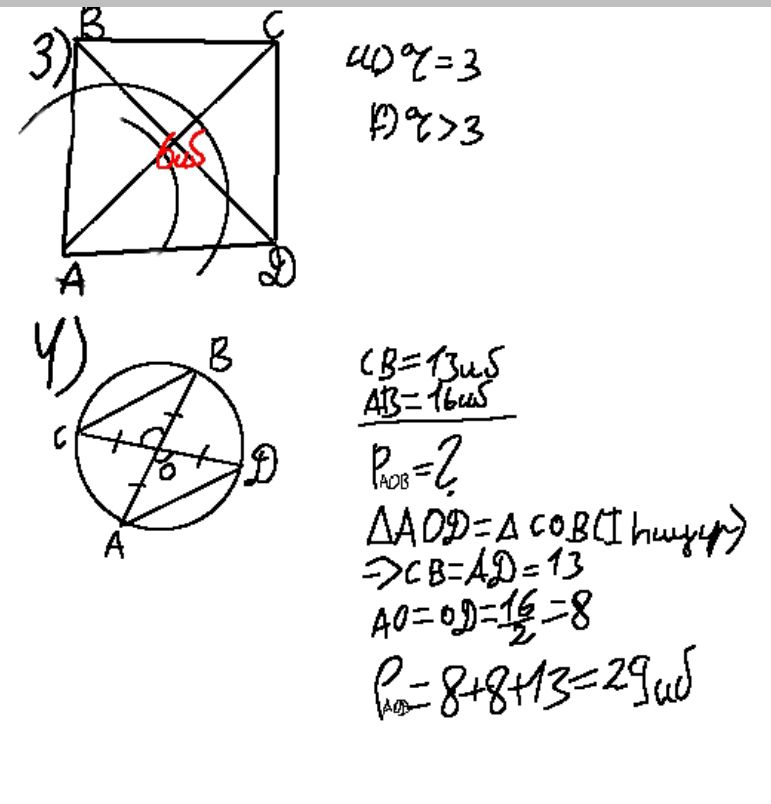 3)
B C
A D
6սմ
ա) r = 3
բ) r > 3
4)
B
C
O
D
A
CB = 13սմ
AB = 16սմ
P AOB = ?
ΔAOD = ΔCOB (I հայտ)
=> CB = AD = 13
AO = OD = 16/2 = 8
P AOD = 8+8+13 = 29սմ